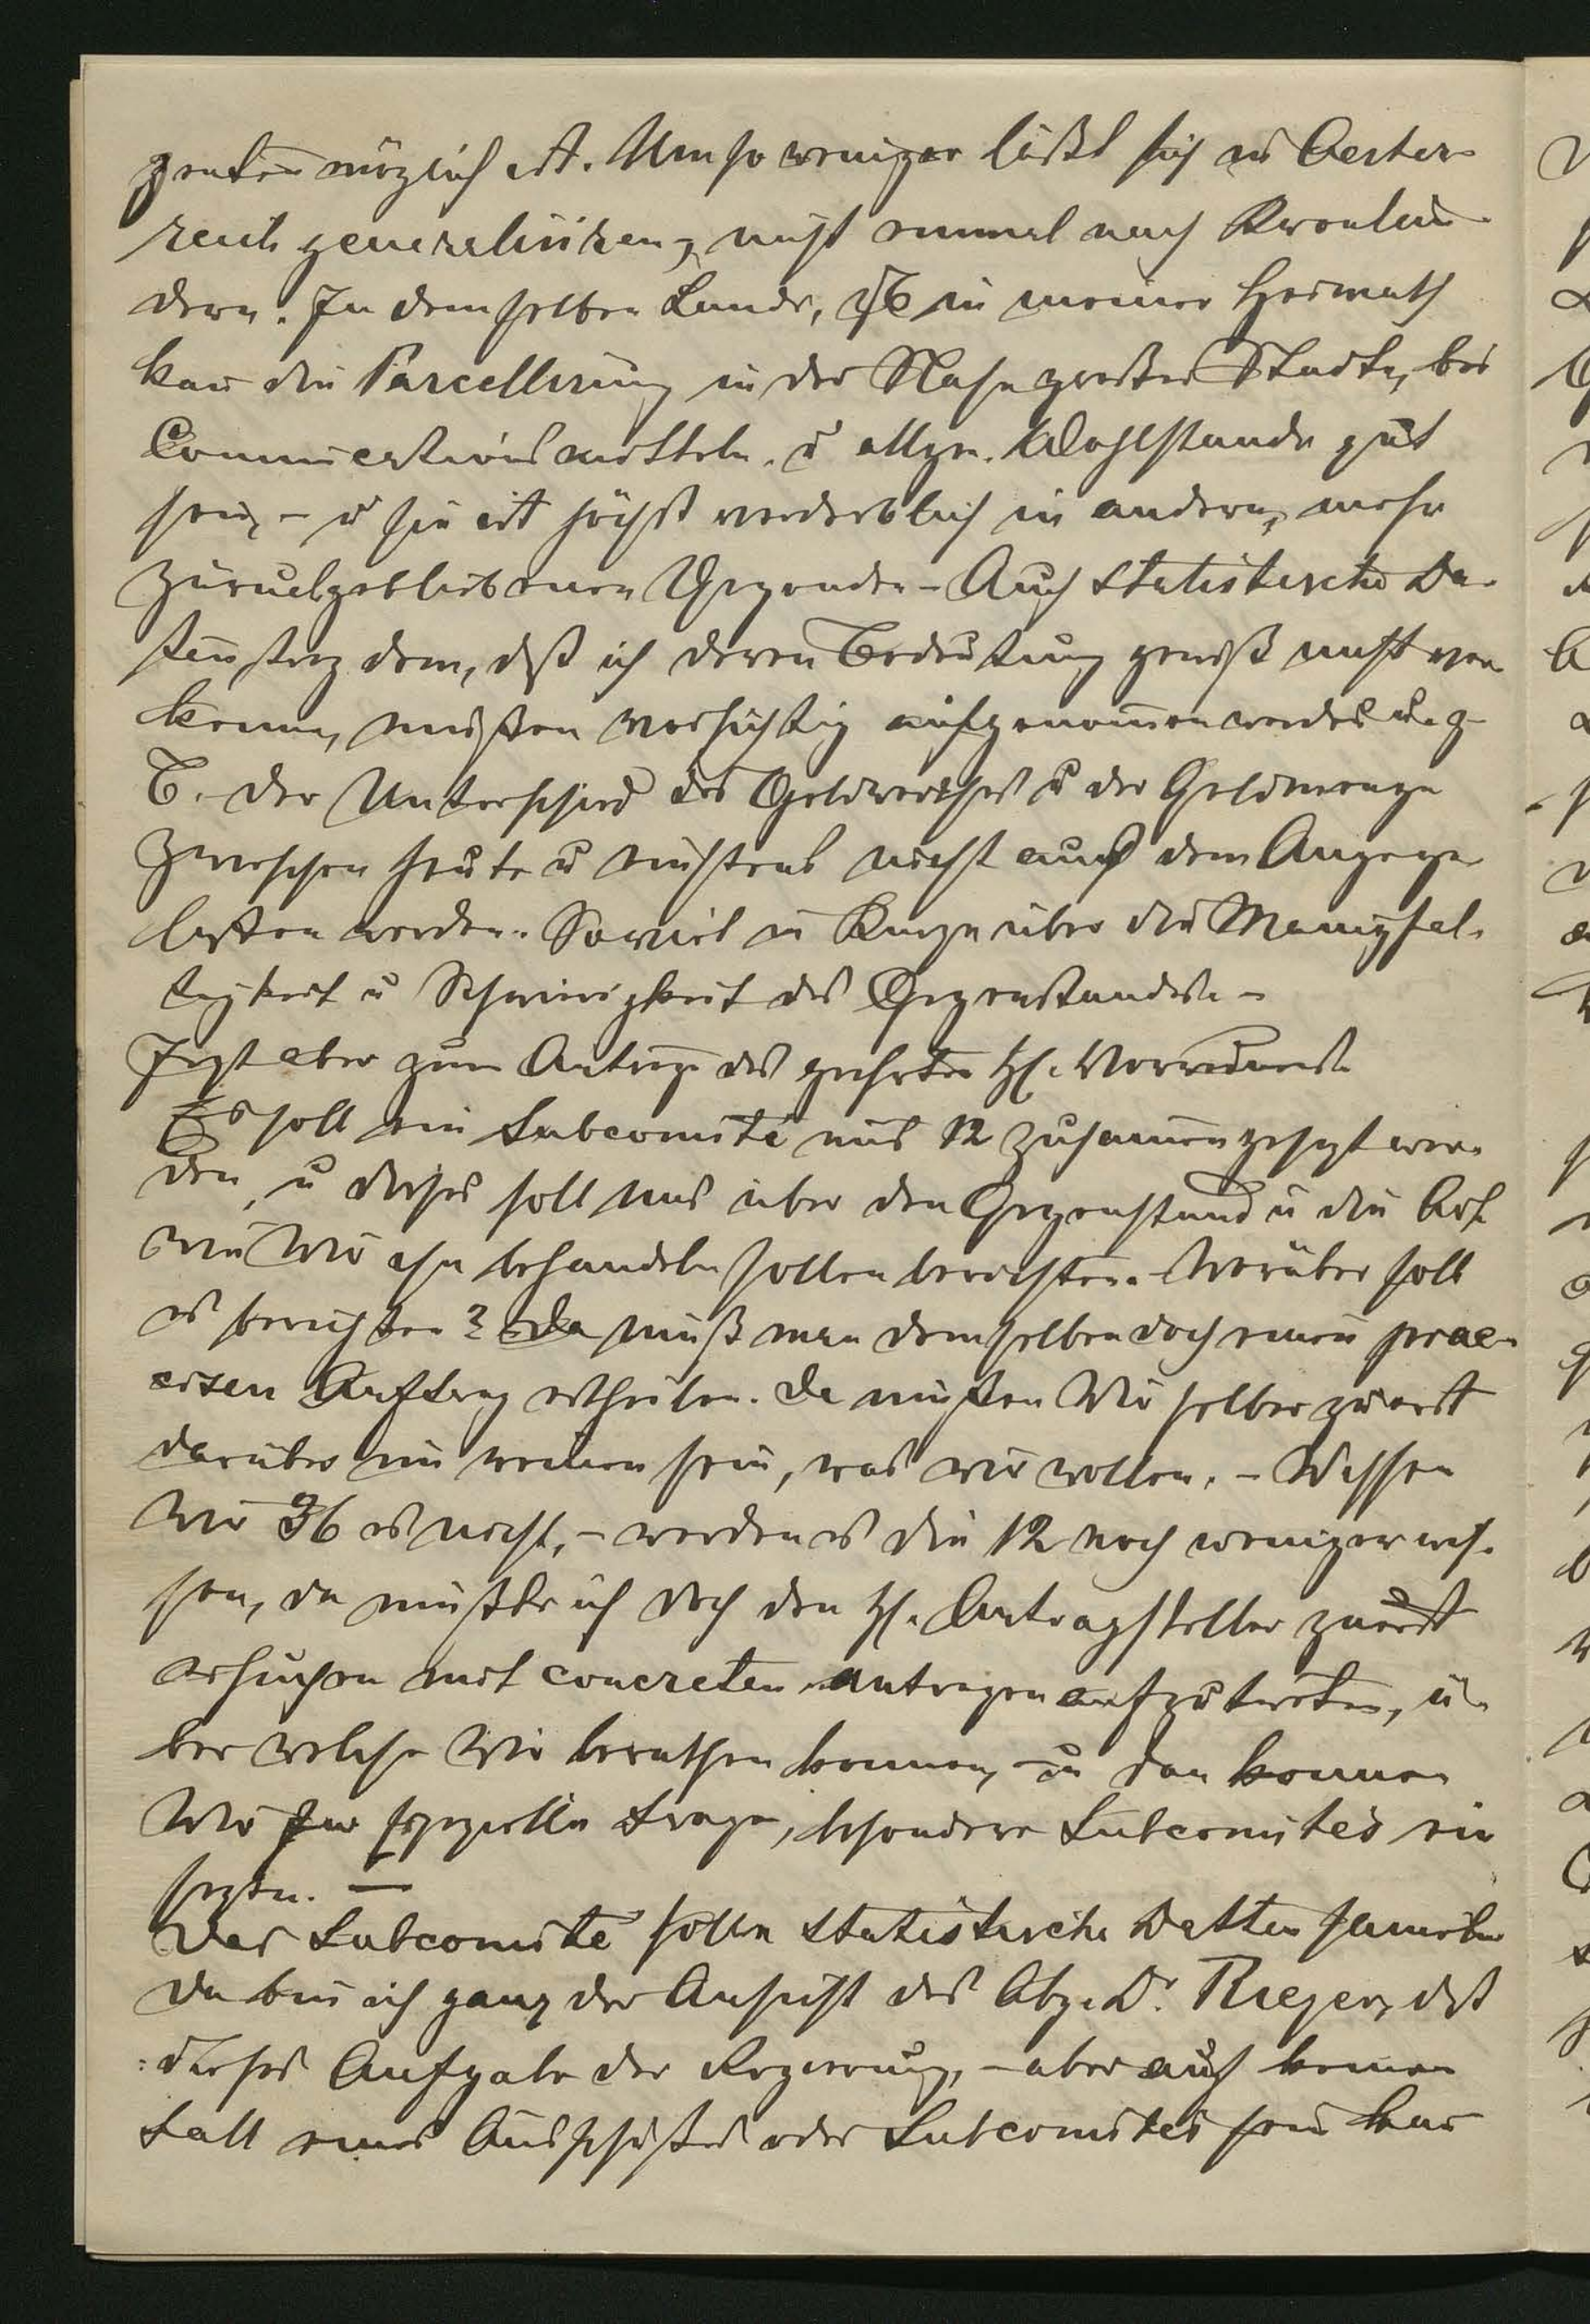 möglich ist. Umso weniger läßt sich in Oester-
reich generalisiren, nicht einmal nach Kronlän-
dern. In demselben Lande, zB in meiner Heimath
kan die Parcellirung in der Nähe großer Städte, bei
Communicationsmitteln u allgm. Wohlstande gut
sein, – u sie ist höchst verderblich in andern, mehr
zurückgebliebenen Gegenden – Auch statistische Da-
ten, trotz dem, daß ich deren Bedeutung gewiß nicht ver
kenne, müßen vorsichtig aufgenommen werden u. z
B. der Unterschied des Geldwerthes u der Geldmenge
zwischen heute u einstens nicht auß dem Auge ge
laßen werden. Soviel in Kurze über die Manigfal-
tigkeit u Schwierigkeit des Gegenstandes. –
Jezt aber zum Antrage des geehrten H. Vorredners.
Es soll ein Subcomité aus 12 zusammengesezt wer-
den, u dieses soll uns über den Gegenstand u die Art
wie Wir ihn behandeln sollen berichten. Worüber soll
es berichten? Da muß man demselben doch einen prae-
cisen Auftrag ertheilen. Da müßen Wir selber zuerst
darüber im reinen sein, was wir wollen. – Wissen
Wir 36 es nicht, – werden es die 12 noch weniger wis-
sen, da müßte ich doch den H. Antragsteller zuerst
ersuchen mit concreten Antragen aufzutreten, ü-
ber welche Wir berathen konnen, – u dan konnen
Wir für spezielle Frage, besondere Subcomités ein
sezen. —
Das Subcomité solle statistische Datten sammeln
Da bin ich ganz der Ansicht des Abg. Dr. Rieger, daß
dieses Aufgabe der Regierung, – aber auf keinen
Fall eines Ausschußes oder Subcomités sein kan